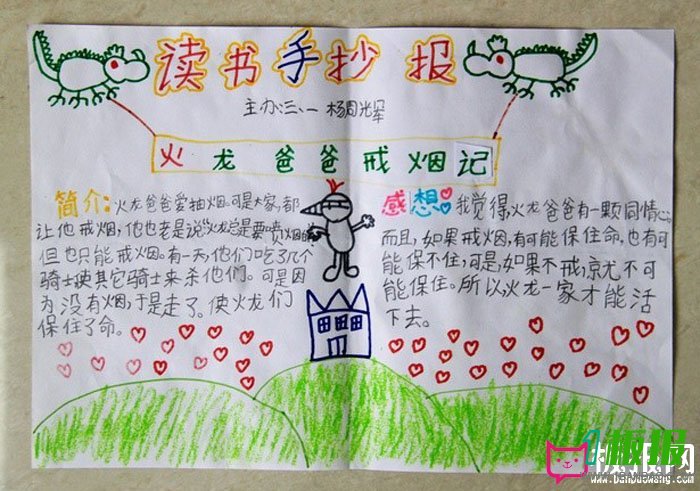 读书手抄报
主办:三、一 杨周光军
火龙爸爸戒烟记
简介:火龙爸爸爱抽烟。可是大家,都
让他戒烟,他也老是说:"火龙总是要喷烟的
但也只能戒烟。有一天,他们吃了几个
骑士,使其它骑士来杀他们。可是因
为没有烟,于是走了。使火龙们
保住了命。
感想:我觉得,火龙爸爸有一颗同情心。
而且,如果戒烟,有可能保住命,也有可
能保不住;可是,如果不戒,就尤不可
能保住。所以,火龙一家才能活
下去。
板报网
www.banbaowang.com